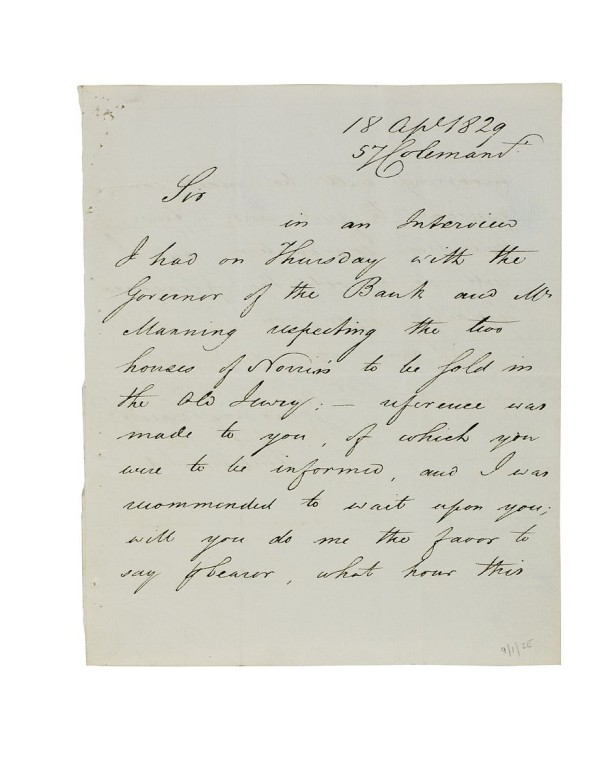 18 Apl. 1829
57 Colemanst.
Sir
in an Interview
I had on Thursday with the
Governor of the Bank and Mr
Manning respecting the two
houses of Norris's to be sold in
the Old Jewry; — reference was
made to you, of which you
were to be informed, and I was
recommended to wait upon you;
will you do me the favor to
say p bearer, what hour this
9/1/25